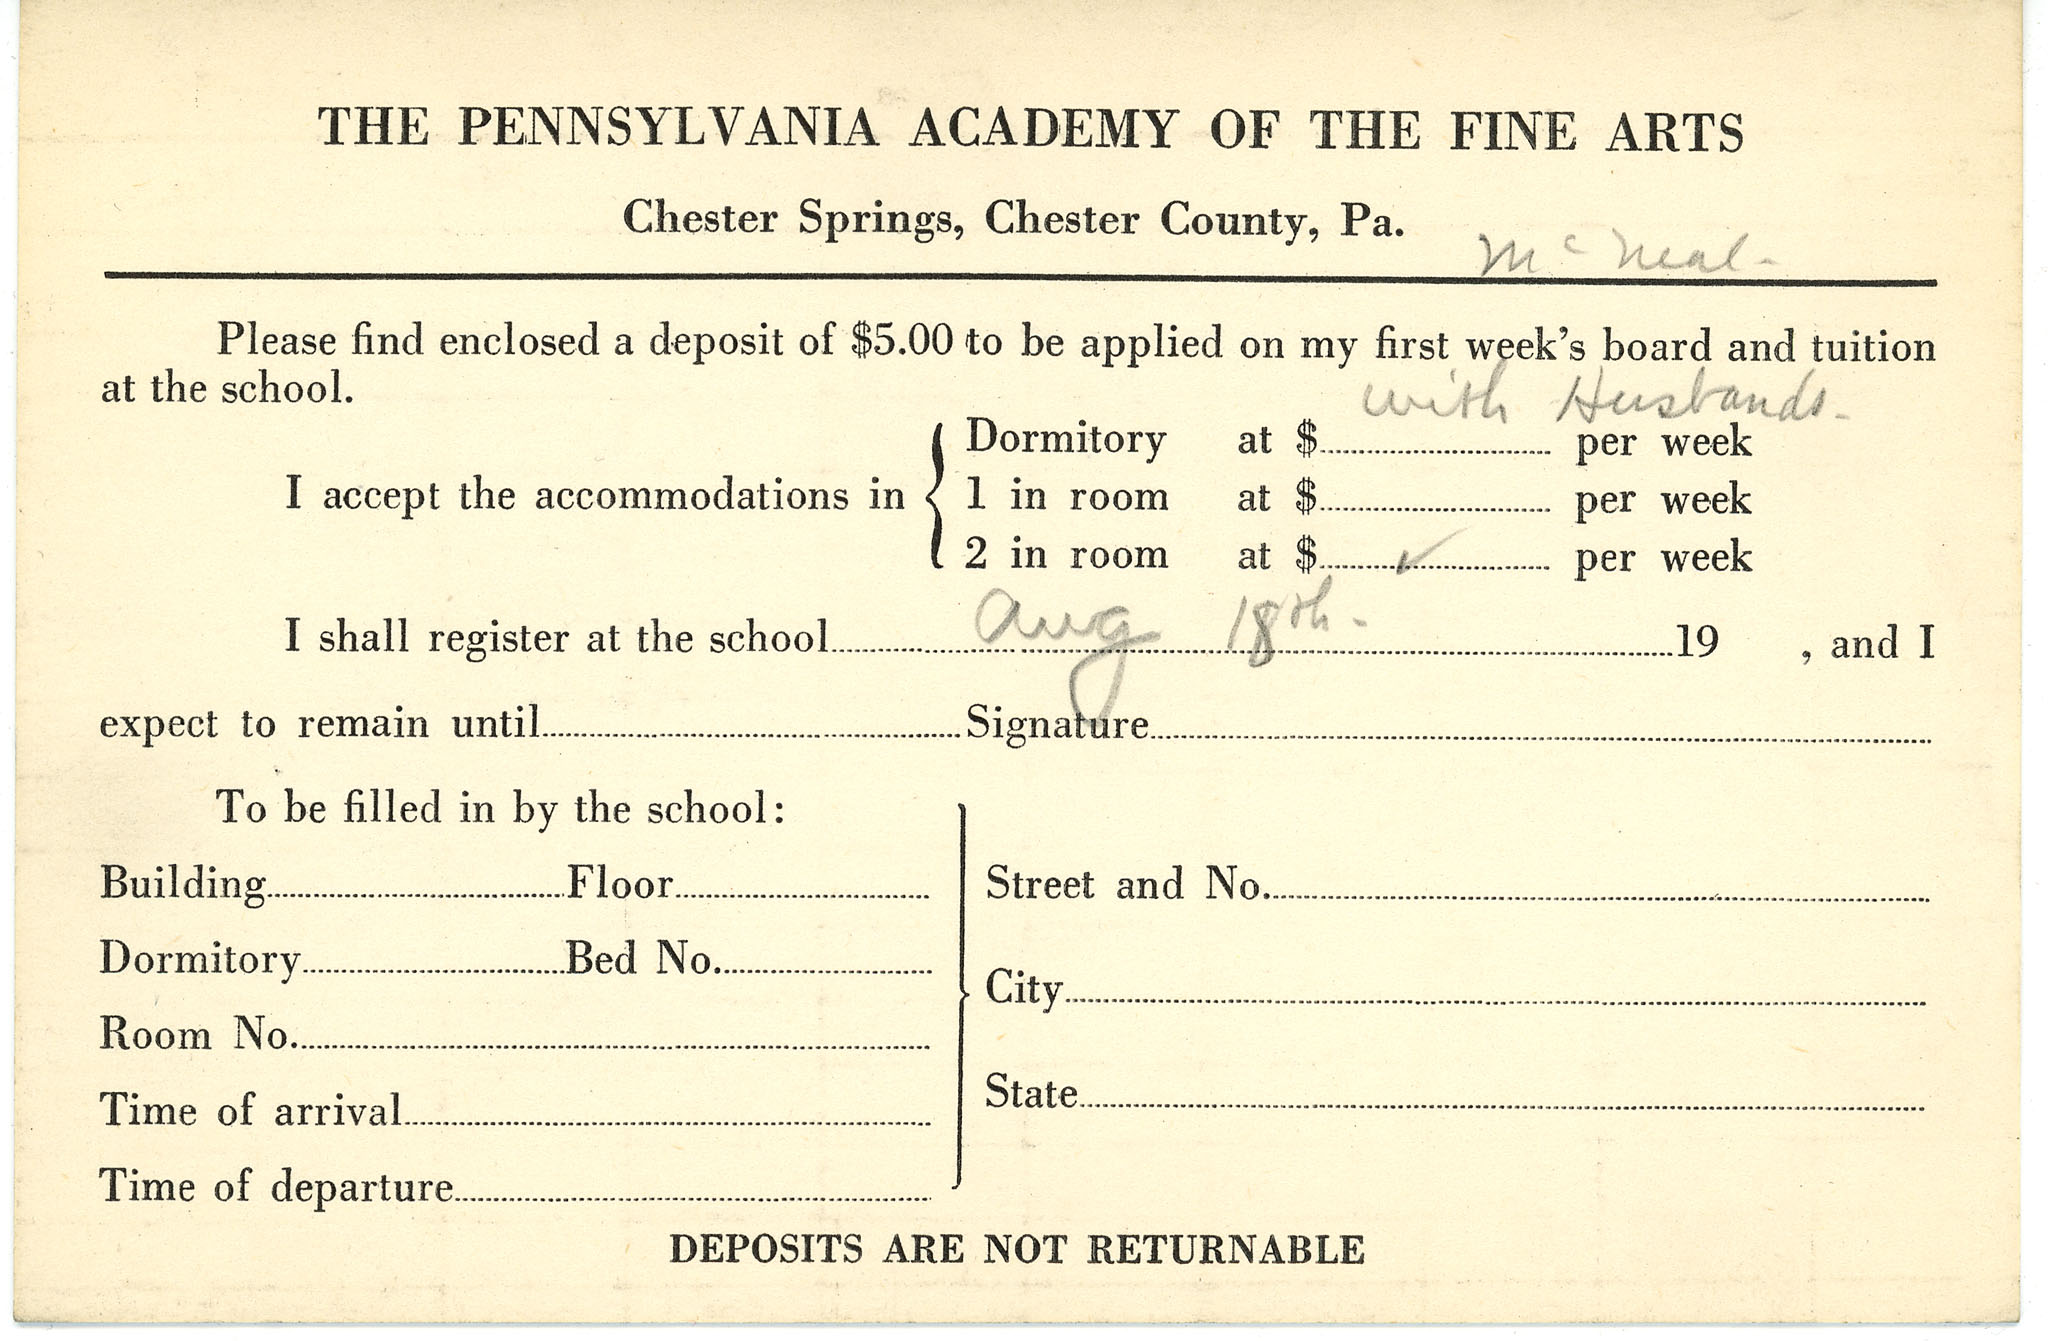 THE PENNSYLVANIA ACADEMY OF THE FINE ARTS
Chester Springs, Chester County, Pa.
Mc Neal-
Please find enclosed a deposit of $5.00 to be applied on my first week's board and tuition
at the school.
with Husbands-
Dormitory at $ per week
I accept the accommodations in 1 in room at $ per week
2 in room at $ ✓ per week
I shall register at the school Aug 18th- 19 , and I
expect to remain until Signature
To be filled in by the school:
Building Floor Street and No.
Dormitory Bed No.
City
Room No.
State
Time of arrival
Time of departure
DEPOSITS ARE NOT RETURNABLE